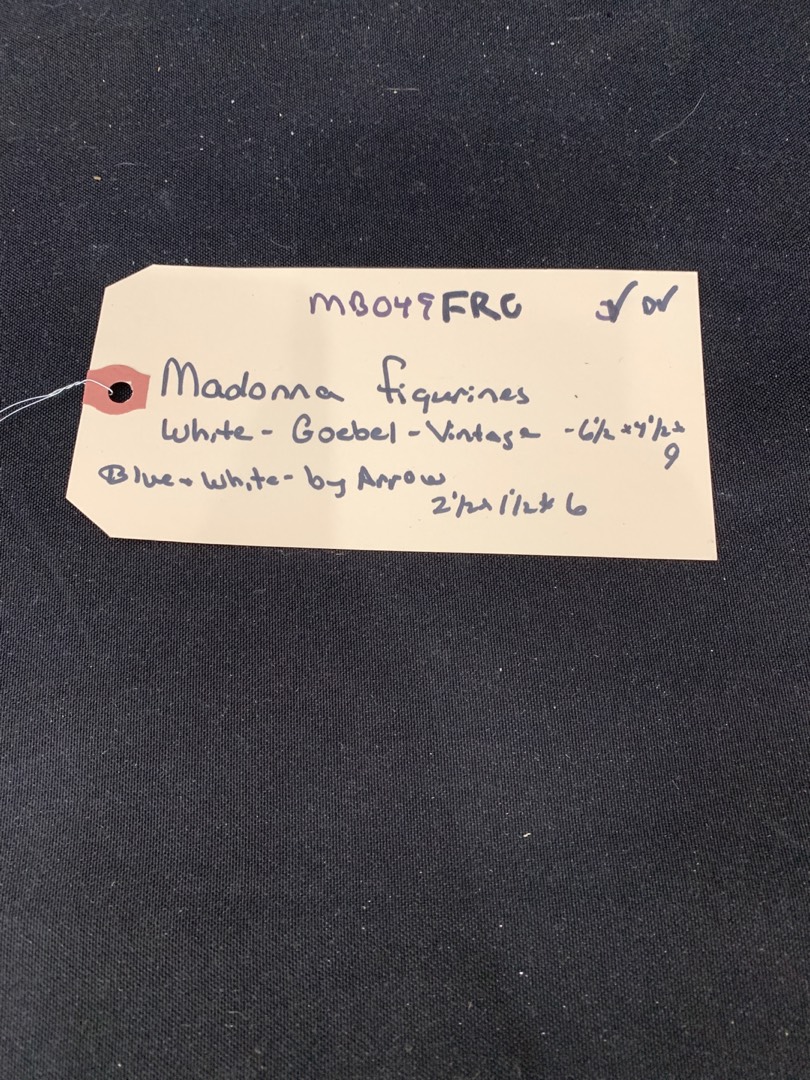 MB049FRC
Madonna figurines
White - Goebel - Vintage - 6 1/2 x 4 1/2 x
9
Blue + White - by Arrow
2 1/2 x 1 1/2 x 6